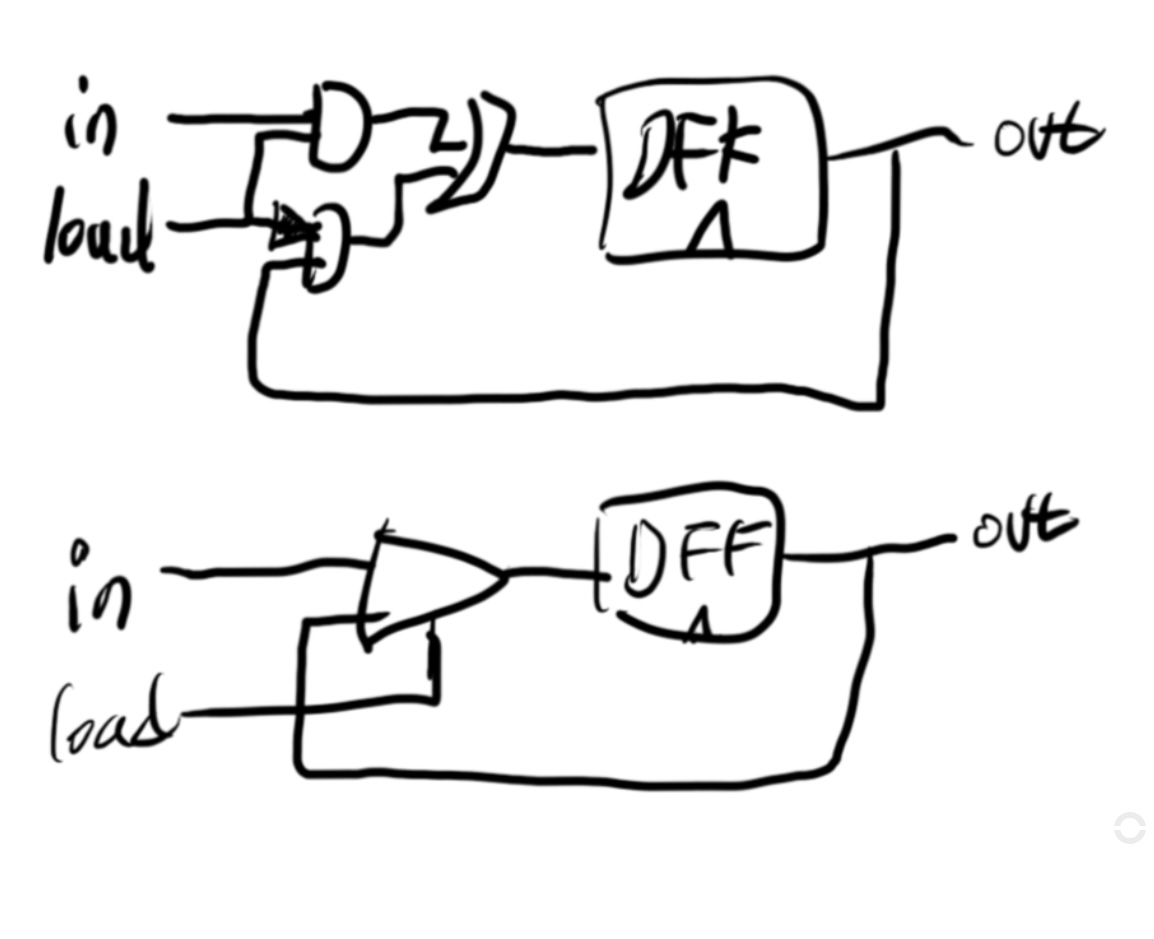 in
load
DFF
out
in
load
DFF
out